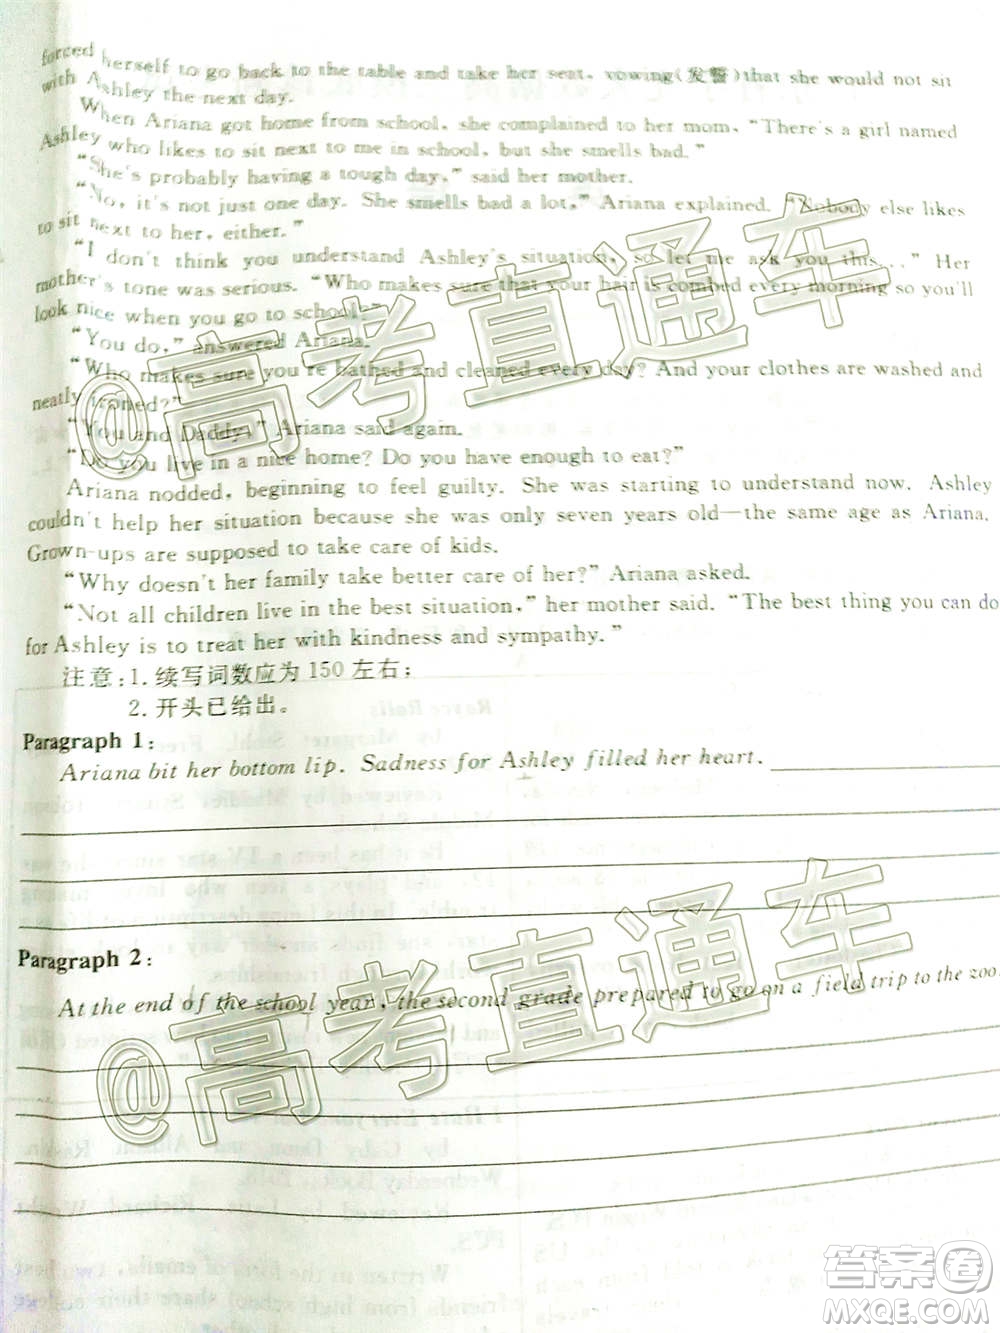 forced herself to go back to the table and take her seat, vowing(发誓)that she would not sit
with Ashley the next day.
When Ariana got home from school, she complained to her mom, "There's a girl named
Ashley who likes to sit next to me in school, but she smells bad."
"She's probably having a tough day," said her mother.
"No, it's not just one day. She smells bad a lot," Ariana explained. "Nobody else likes
to sit next to her, either."
"I don't think you understand Ashley's situation, so let me ask you this..." Her
mother's tone was serious. "Who makes sure that your hair is combed every morning so you'll
look nice when you go to school?"
"You do," answered Ariana.
"Who makes sure you're bathed and cleaned every day? And your clothes are washed and
neatly ironed?"
"You and Daddy," Ariana said again.
"Do you live in a nice home? Do you have enough to eat?"
Ariana nodded, beginning to feel guilty. She was starting to understand now. Ashley
couldn't help her situation because she was only seven years old—the same age as Ariana.
Grown-ups are supposed to take care of kids.
"Why doesn't her family take better care of her?" Ariana asked.
"Not all children live in the best situation," her mother said. "The best thing you can do
for Ashley is to treat her with kindness and sympathy."
注意:1. 续写词数应为 150 左右;
2. 开头已给出。
Paragraph 1:
Ariana bit her bottom lip. Sadness for Ashley filled her heart.
Paragraph 2:
At the end of the school year, the second grade prepared to go on a field trip to the zoo.
@高考直通车
@高考直通车
答案圈
MXQE.COM